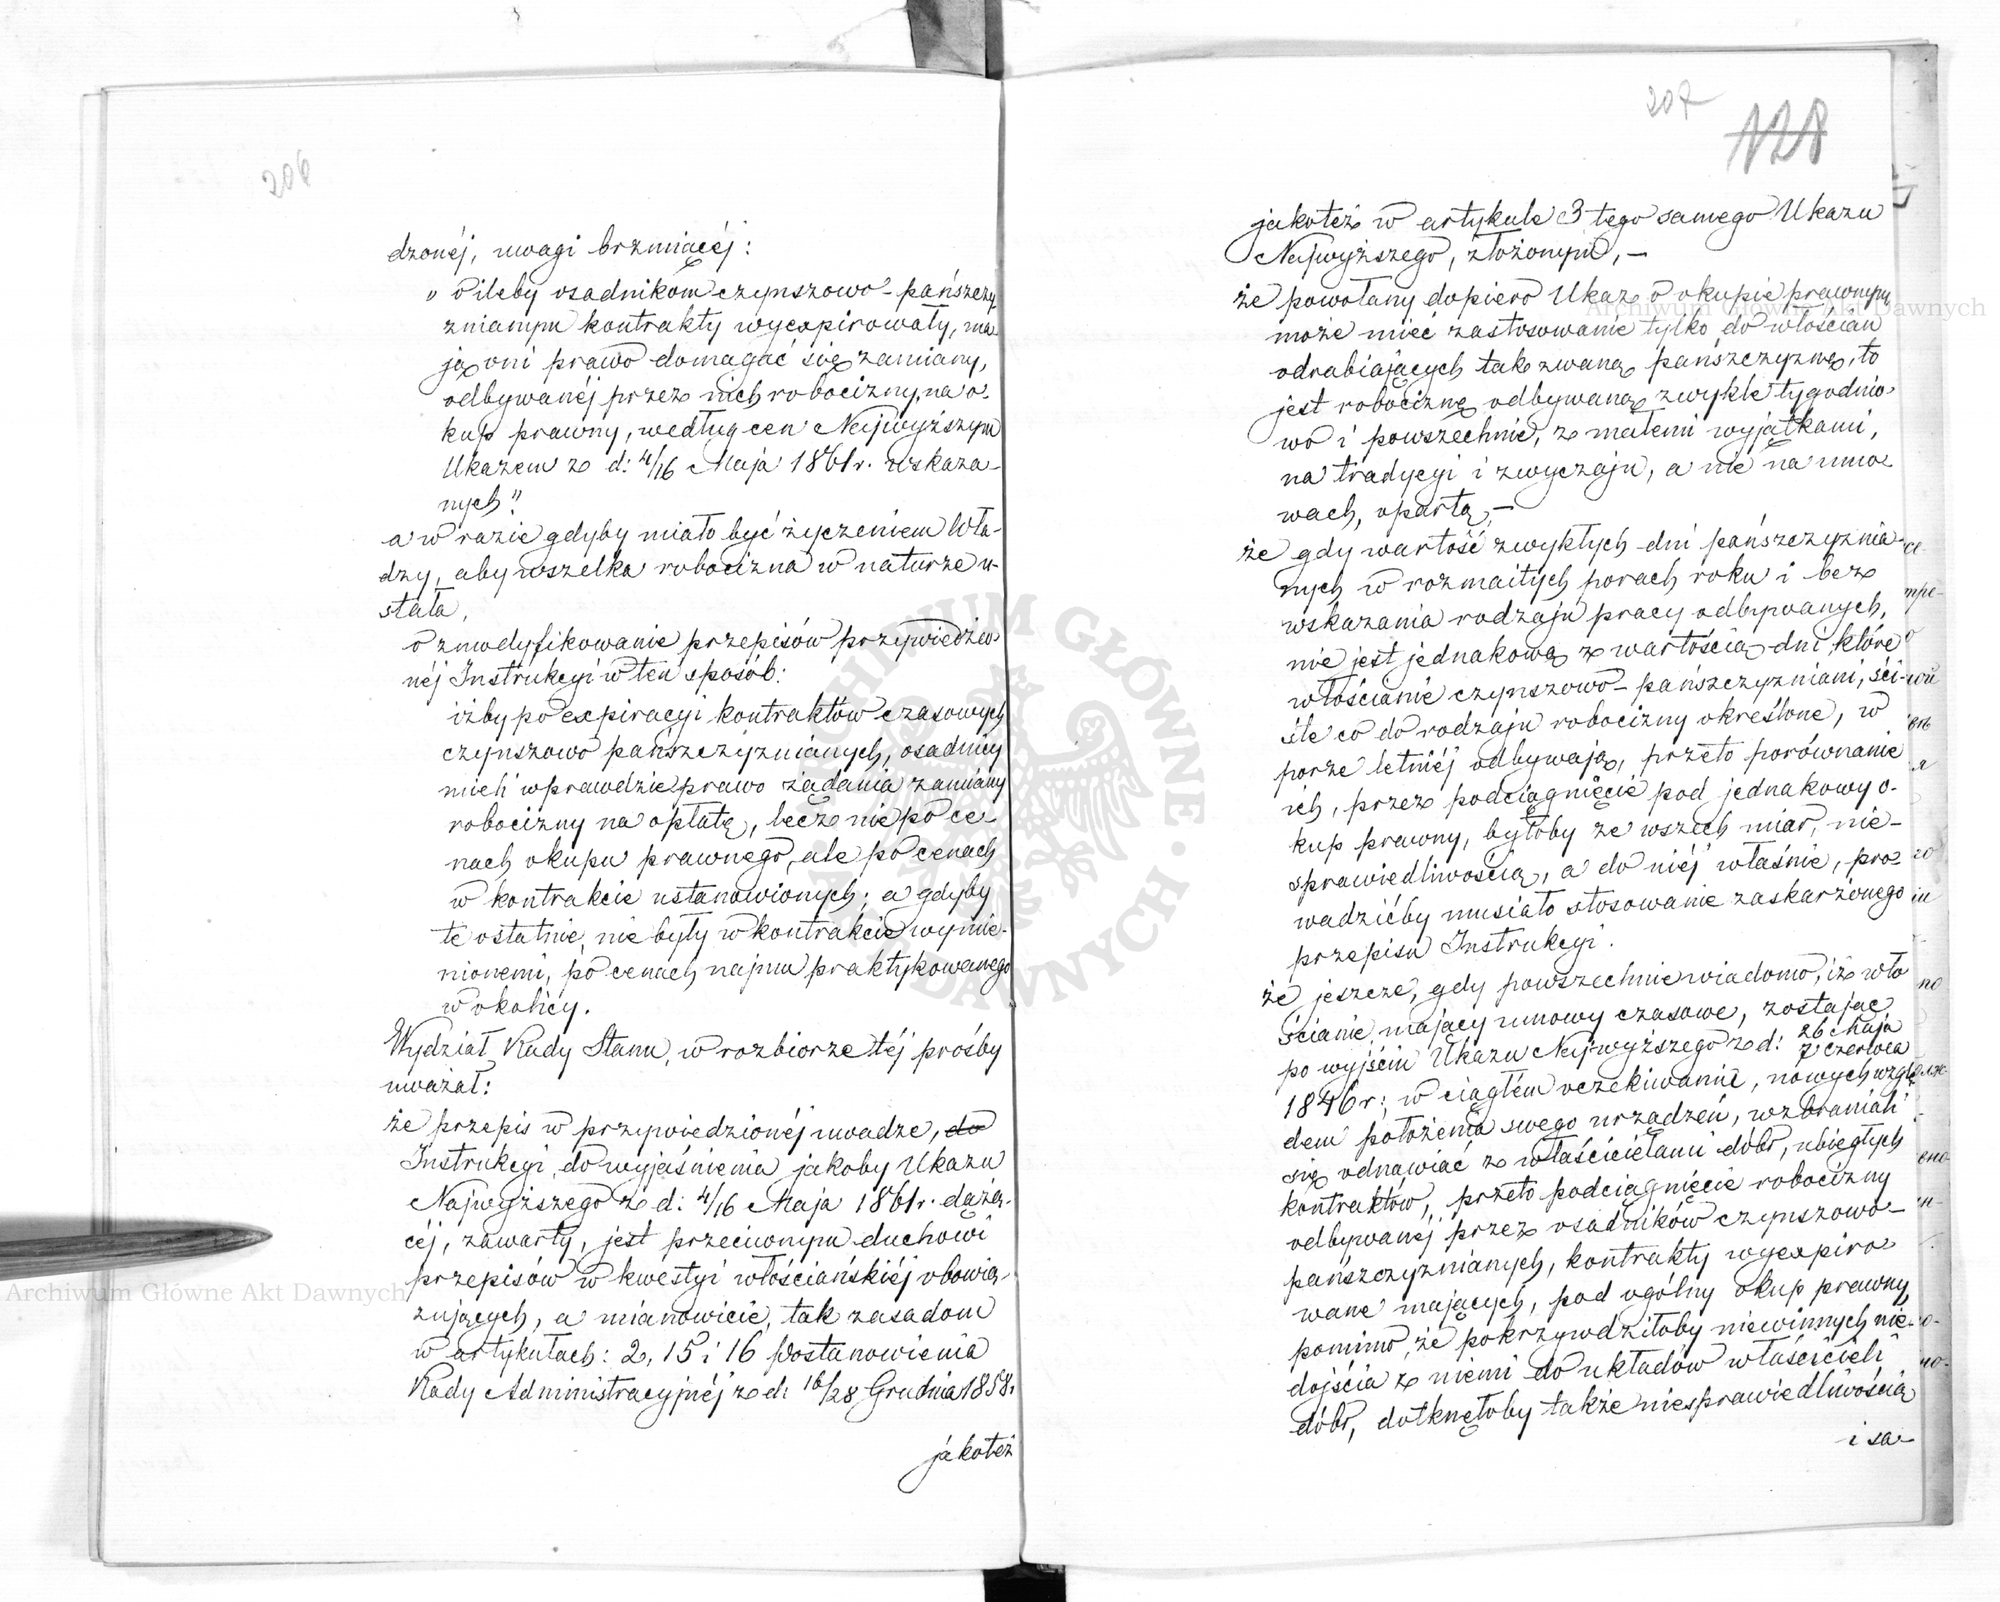 206
dzonéj, uwagi brzmiącéj:
„o ileby osadnikom czynszowo-pańszczy
znianym kontrakty wyexpirowały, ma-
ją oni prawo domagać się zamiany,
odbywanéj przez nich robocizny, na o-
kup prawny, według cen Najwyższym
Ukazem z d: 4/16 Maja 1861 r. wskaza-
nych"
a w razie gdyby miało być życzeniem Wła-
dzy, aby wszelka robocizna w naturze u-
stała,
o zmodyfikowanie przepisów przywiedzio-
néj Instrukcyi w ten sposób:
iżby po expiracyi kontraktów czasowych
czynszowo pańszczyznianych, osadnicy
mieli wprawdzie prawo żądania zamiany
robocizny na opłatę, lecz nie po ce-
nach okupu prawnego, ale po cenach
w kontrakcie ustanowionych; a gdyby
te ostatnie, nie były w kontrakcie wymie-
nionemi, po cenach najmu praktykowanego
w okolicy.
Wydział Rady Stanu, w rozbiorze téj prośby
uważał:
że przepis w przywiedzionéj uwadze, do
Instrukcyi, do wyjaśnienia jakoby Ukazu
Najwyższego z d: 4/16 Maja 1861 r. dążą-
céj, zawarty, jest przeciwnym duchowi
przepisów w kwestyi włościańskiéj obowią-
zujących, a mianowicie, tak zasadom
w artykułach: 2, 15 i 16 Postanowienia
Rady Administracyjnéj z d: 16/28 Grudnia 1858 r.
jakoteż
207
128
jakoteż w artykule 3 tego samego Ukazu
Najwyższego, złożonym, —
że powołany dopiero Ukaz o okupie prawnym
może mieć zastosowanie tylko do włościan
odrabiających tak zwaną pańszczyznę, to
jest robociznę odbywaną zwykle tygodnio-
wo i powszechnie, z małemi wyjątkami,
na tradycyi i zwyczaju, a nie na umo-
wach, opartą, —
że gdy wartość zwykłych dni pańszczyznia-
nych w rozmaitych porach roku i bez
wskazania rodzaju pracy odbywanych,
nie jest jednakową z wartością dni, które
włościanie czynszowo-pańszczyzniani, ści-
śle co do rodzaju robocizny określone, w
porze letniéj odbywają, przeto porównanie
ich, przez podciągnięcie pod jednakowy o-
kup prawny, byłoby ze wszech miar, nie-
sprawiedliwością, a do niéj właśnie, pro-
wadzićby musiało stosowanie zaskarżonego
przepisu Instrukcyi.
że jeszcze, gdy powszechnie wiadomo, iż wło
ścianie mający umowy czasowe, zostając
po wyjściu Ukazu Najwyższego z d: 26 Maja
7 Czerwca
1846 r:, w ciągłém oczekiwaniu, nowych wzglę
dem położenia swego urządzeń, wzbraniali
się odnawiać z właścicielami dóbr, ubiegłych
kontraktów, przeto podciągnięcie robocizny
odbywanéj przez osadników czynszowo-
pańszczyznianych, kontrakty wyexpiro-
wane mających, pod ogólny okup prawny,
pomimo, że pokrzywdziłoby niewinnych nie-
dojścia z niemi do układów właścicieli
dóbr, dotknęłoby także niesprawiedliwością
i sa-
Archiwum Główne Akt Dawnych
Archiwum Główne Akt Dawnych
ARCHIWUM GŁÓWNE AKT DAWNYCH